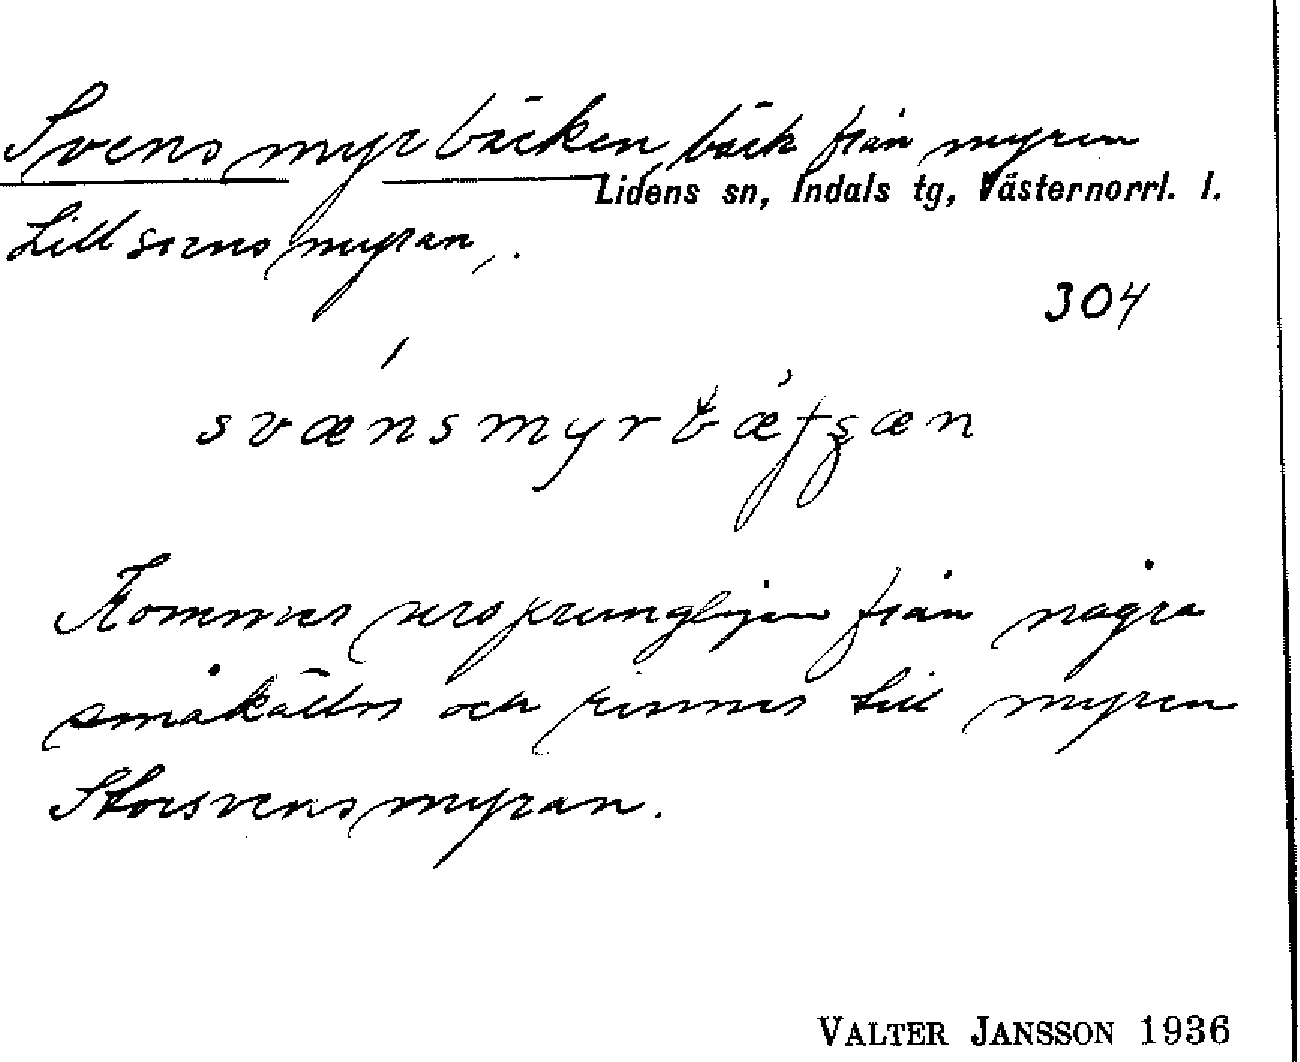 Svensmyrbäcken, bäck från myren
Lidens sn, Indals tg, Västernorrl. l.
Lillsvensmyran,.
304
svænsmyrbæ
Kommer ursprungligen från några
småkällor och rinner till myren
Storsvensmyran.
VALTER JANSSON 1936